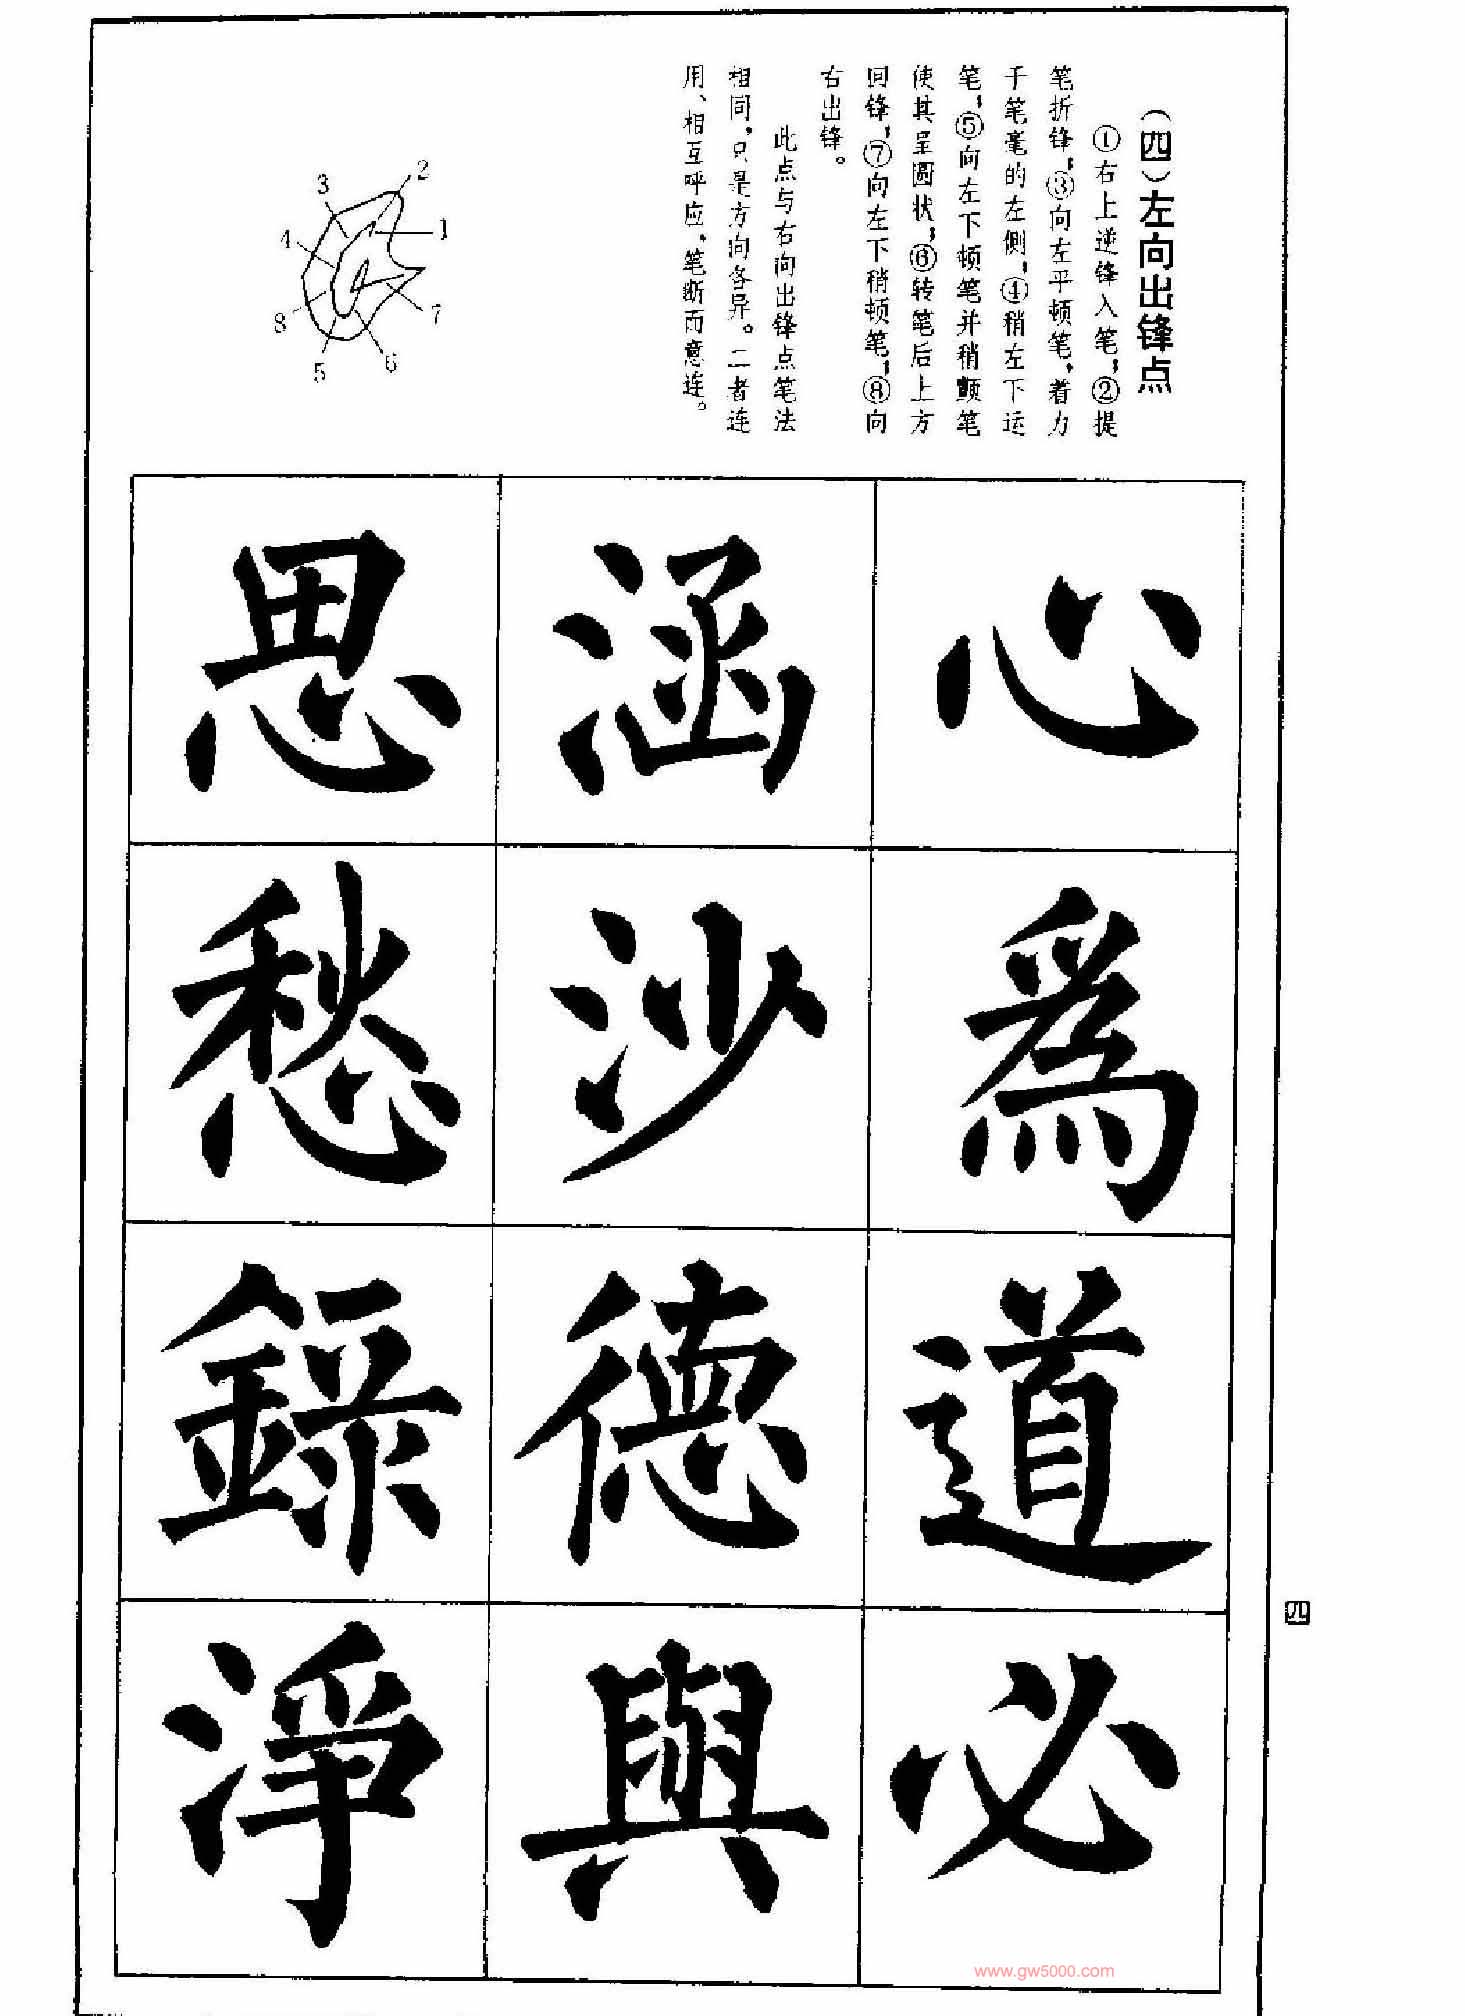 (四)左向出锋点
①右上逆锋入笔;②提
笔折锋;③向左平顿笔,着力
于笔毫的左侧;④稍左下运
笔;⑤向左下顿笔并稍颤笔
使其呈圆状;⑥转笔后上方
回锋;⑦向左下稍顿笔;⑧向
右出锋。
此点与右向出锋点笔法
相同,只是方向各异。二者连
用、相互呼应,笔断而意连。
2
3
1
4
7
8
5
6
心
為
道
必
涵
沙
德
與
思
愁
錄
淨
四
www.gw5000.com